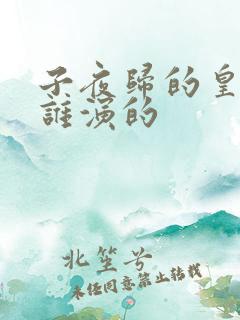 子夜歸的皇
誰演的
北笙兮
未经同意禁止转载